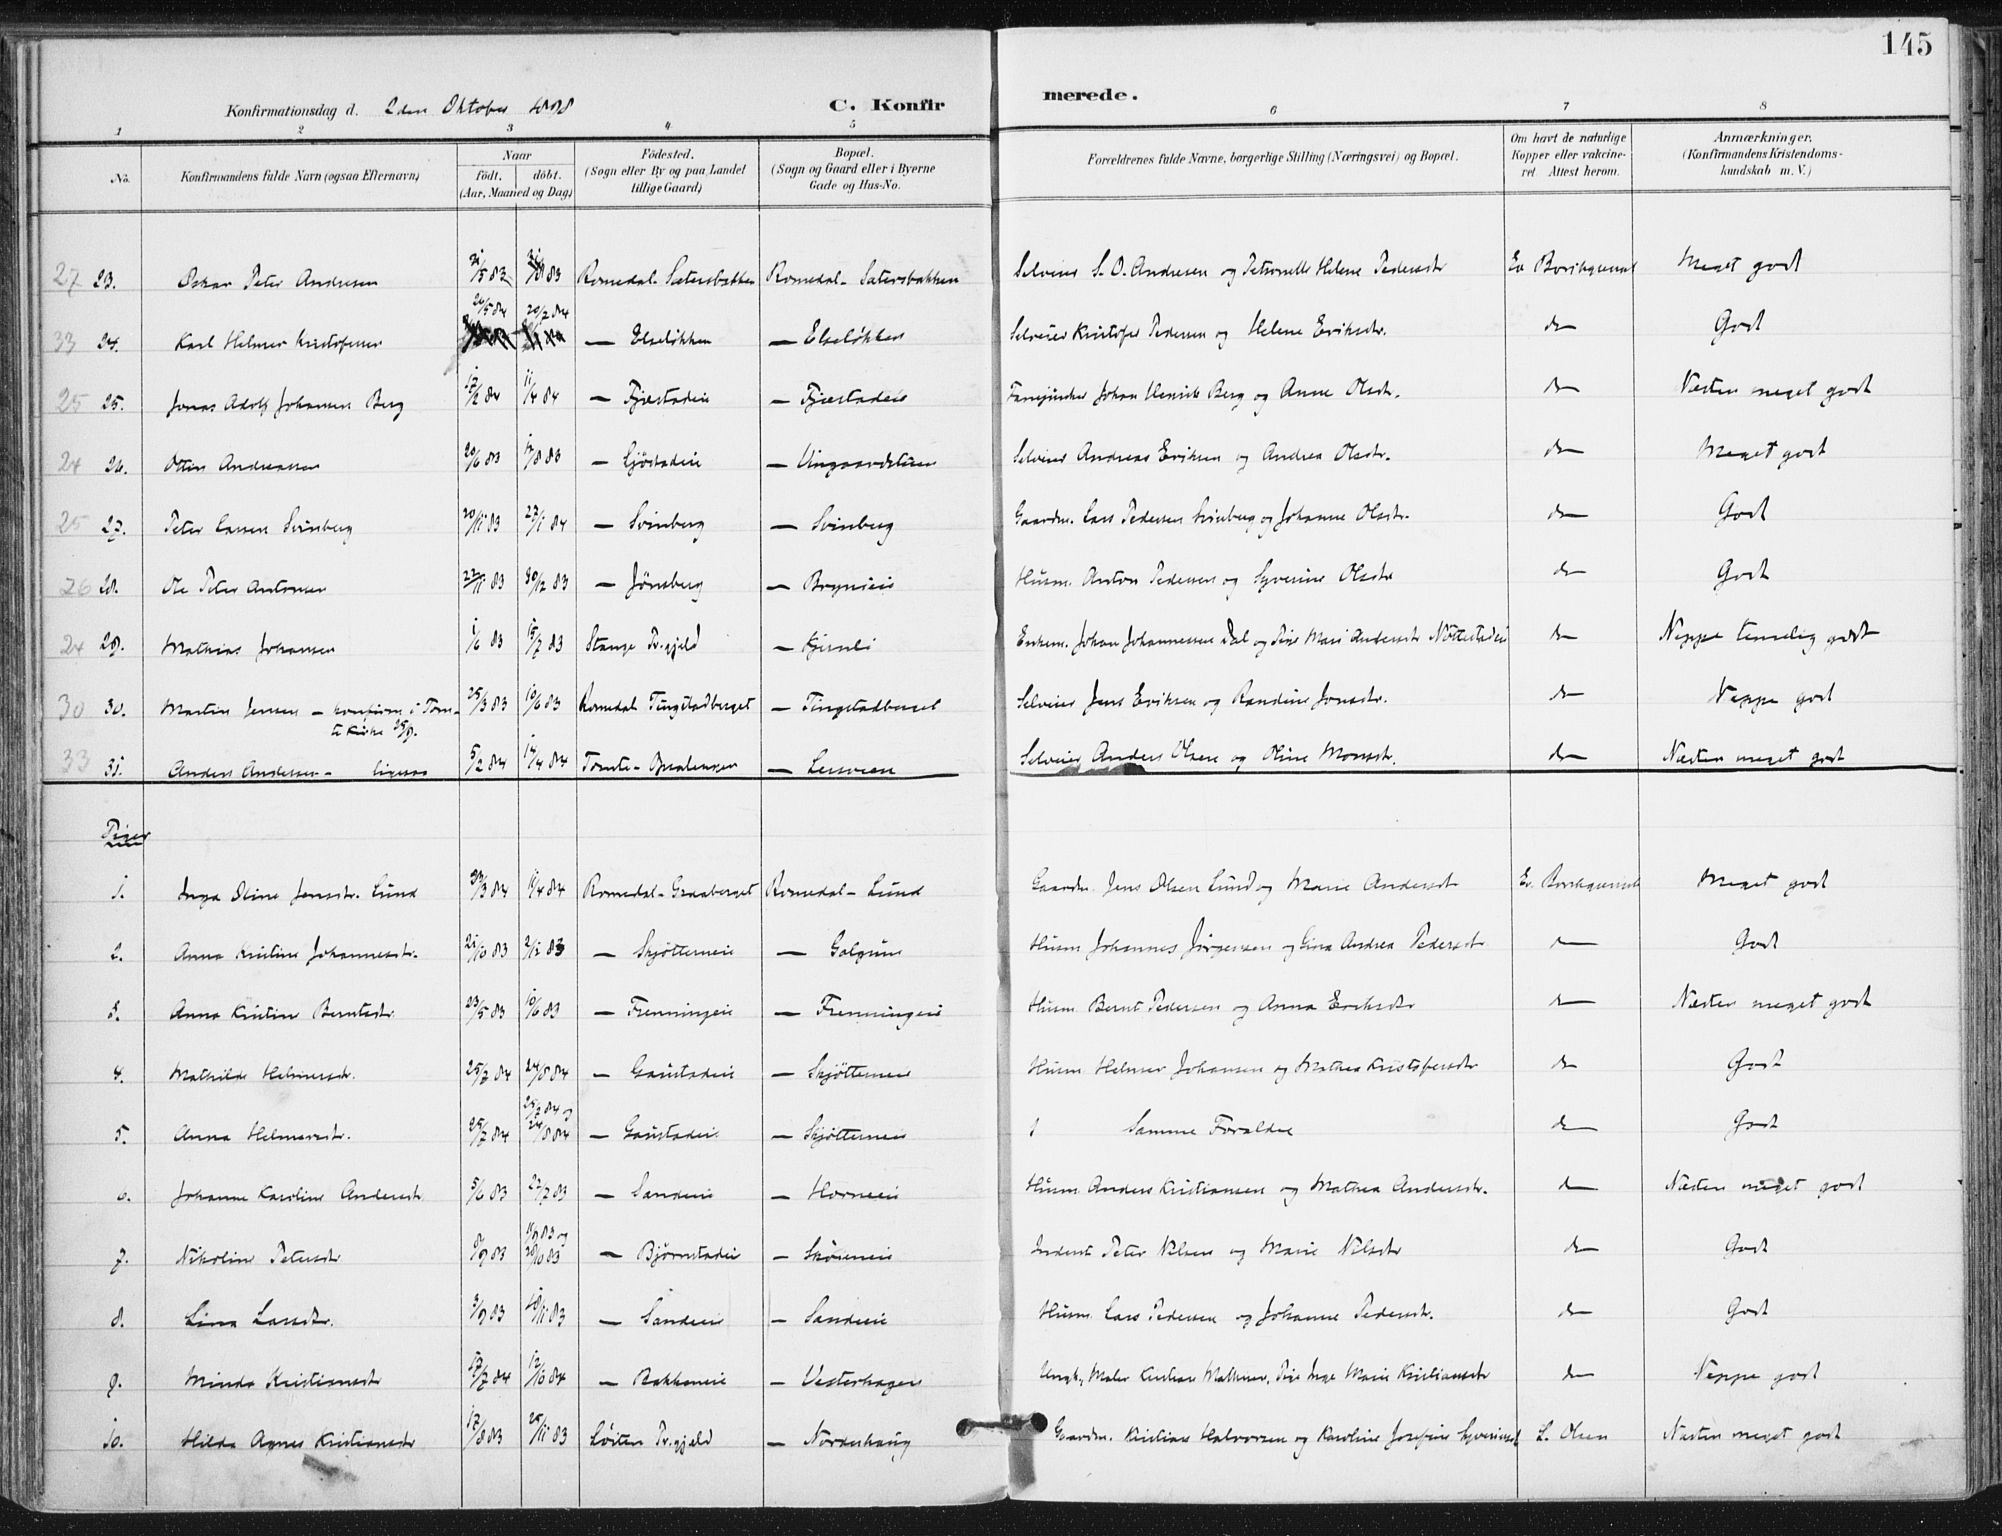 145
Konfirmationsdag d. 2den Oktober 1898 C. Konfirmerede.
1 2 3 4 5 6 7 8
No. Konfirmandens fulde Navn (ogsaa Efternavn) Naar født. døbt. (Aar, Maaned og Dag) Fødested. (Sogn eller By og paa Landet tillige Gaard) Bopæl. (Sogn og Gaard eller i Byerne Gade og Hus-No. Forældrenes fulde Navne, borgerlige Stilling (Næringsvei) og Bopæl. Om havt de naturlige Kopper eller vakcineret. Attest herom. Anmærkninger. (Konfirmandens Kristendomskundskab m. V.)
27 23. Oskar Peter Andresen 31/5 83 83 Romedal - Sætersbakken Romedal - Sætersbakken Selveier S. O. Andresen og Petronelle Helene Pedersdtr Meget godt
33 24. Karl Helmer Kristofersen 20/2 84 — Elseløkken — Elseløkken Selveier Kristofer Pedersen og Helene Eriksdtr. do Godt
25 25. Jonas Adolf Johansen Berg 17/2 84 11/4 84 — Fjæstadeie — Fjæstadeie Johan Henrik Berg og Anne Olsdtr. do Næsten meget godt
24 26. Andreassen 20/6 83 12/8 83 — Gjøstadeie — Selveier Andreas Eriksen og Andrea Olsdtr. do Meget godt
25 27. Peter Larsen Svinberg 20/11 83 27/1 84 — Svinberg — Svinberg Gaardm. Lars Pedersen Svinberg og Johanne Olsdtr. do Godt
26 28. Ole Peter Antonsen 22/11 83 30/12 83 — Jønsberg — Brynieie Husm. Anton Pedersen og Syverine Olsdtr do Godt
24 29. Mathias Johansen 1/6 83 15/7 83 Stange Pr.gjeld — Kjernli Enkem. Johan Johannessen Dal og Pige Mari Andersdtr Nøttestadeie do Neppe temmelig godt
30 30. Martin Jensen — konfirm. i Tomte kirke 25/9. 25/3 83 10/6 83 Romedal Tingstadberget — Tingstadberget Selveier Jens Eriksen og Randine Jonsdtr. do Neppe godt
33 31. Anders Andersen - ligesaa 5/2 84 14/4 84 Tomte - — Selveier Anders Olsen og Oline Monsdtr. do Næsten meget godt
Piger
1. Inga Oline Jensdtr. Lund 84 84 Romedal - Graaberget Romedal - Lund Gaardm. Jens Olsen Lund og Marie Andersdtr Meget godt
2. Anna Kristine Johannesdtr. 21/10 83 2/12 83 — Skjøtterneie — Galgum Husm Johannes Jørgensen og Gina Andrea Pedersdtr do Godt
3. Anna Kristine Berntsdtr 23/5 83 10/6 83 — Frenningeie — Frenningeie Husm. Bernt Pedersen og Anna Eriksdtr do Næsten meget godt
4. Mathilde Helmersdtr. 25/7 84 24/8 84 — Gaustadeie — Skjøtterneie Husm Helmer Johansen og Mathea Kristofersdtr do Godt
5. Anna Helmersdtr. 25/7 84 25/7 84 og 24/8 84 — Gaustadeie — Skjøtterneie Samme Forældre do Godt
6. Johanne Karoline Andersdtr 5/6 83 22/7 83 — Sandeie — Horneeie Husm. Anders Kristiansen og Mathea Andersdtr. do Næsten meget godt
7. Nikoline Petersdtr 8/9 83 11/9 83 og 28/10 83 — Bjørnstadeie — Inderst Peter Nilsen og Marie Nilsdtr do Godt
8. Lina Larsdtr. 3/9 83 18/11 83 — Sandeie — Sandeie Husm. Lars Pedersen og Johanne Pedersdtr. do Godt
9. Minda Kristiansdtr 17/7 84 12/10 84 — Bakkeneie — Vesterhagen Ungk., Maler Kristian Mathisen, Pige Inge Marie Kristiansdtr do Neppe godt
10. Hilda Agnes Kristiansdtr 17/8 83 25/11 83 Løiten Pr.gjeld — Nordenhaug Gaardm. Kristian Halvorsen og Karoline Josefine Syverinsdtr L. Olsen Næsten meget godt